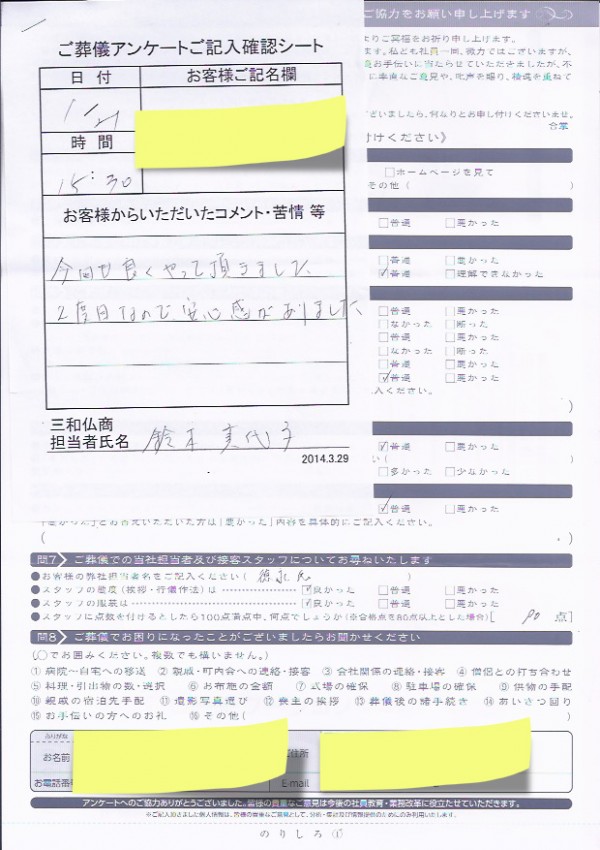 ご協力をお願い申し上げます
ご葬儀アンケートご記入確認シート
日付
お客様ご記名欄
時間
15:30
お客様からいただいたコメント・苦情 等
今回も良くやって頂きました
2度目なので安心感がありました
三和仏商
担当者氏名 鈴木美代子
2014.3.29
合掌
付けください》
□ホームページを見て
その他(
□普通 □悪かった
□普通 □悪かった
☑普通 □理解できなかった
□普通 □悪かった
□なかった □断った
□普通 □悪かった
□なかった □断った
□普通 □悪かった
☑普通 □悪かった
入ください。
☑普通 □悪かった
□多かった □少なかった
☑普通 □悪かった
「悪かった」とお答えいただいた方は「悪かった」内容を具体的にご記入ください。
問7 ご葬儀での当社担当者及び接客スタッフについてお尋ねいたします
●お客様の弊社担当者名をご記入ください( 徳永氏 )
●スタッフの態度(挨拶・行儀作法)は ☑良かった □普通 □悪かった
●スタッフの服装は ☑良かった □普通 □悪かった
●スタッフに点数を付けるとしたら100点満点中、何点でしょうか(※合格点を80点以上とした場合)[ 90 点]
問8 ご葬儀でお困りになったことがございましたらお聞かせください
(〇でお囲みください。複数でも構いません。)
① 病院~自宅への移送 ② 親戚・町内会への連絡・接客 ③ 会社関係の連絡・接客 ④ 僧侶との打ち合わせ
⑤ 料理・引出物の数・選択 ⑥ お布施の金額 ⑦ 式場の確保 ⑧ 駐車場の確保 ⑨ 供物の手配
⑩ 親戚の宿泊先手配 ⑪ 遺影写真選び ⑫ 喪主の挨拶 ⑬ 葬儀後の諸手続き ⑭ あいさつ回り
⑮ お手伝いの方へのお礼 ⑯ その他( )
ふりがな
お名前
ご住所
お電話番号
E-mail
アンケートへのご協力ありがとうございました。皆様の貴重なご意見は今後の社員教育・業務改革に役立たせていただきます。
※ご記入頂きました個人情報は、皆様の貴重なご意見として、分析・集計及び情報提供のためにのみ利用いたします。
のりしろ①